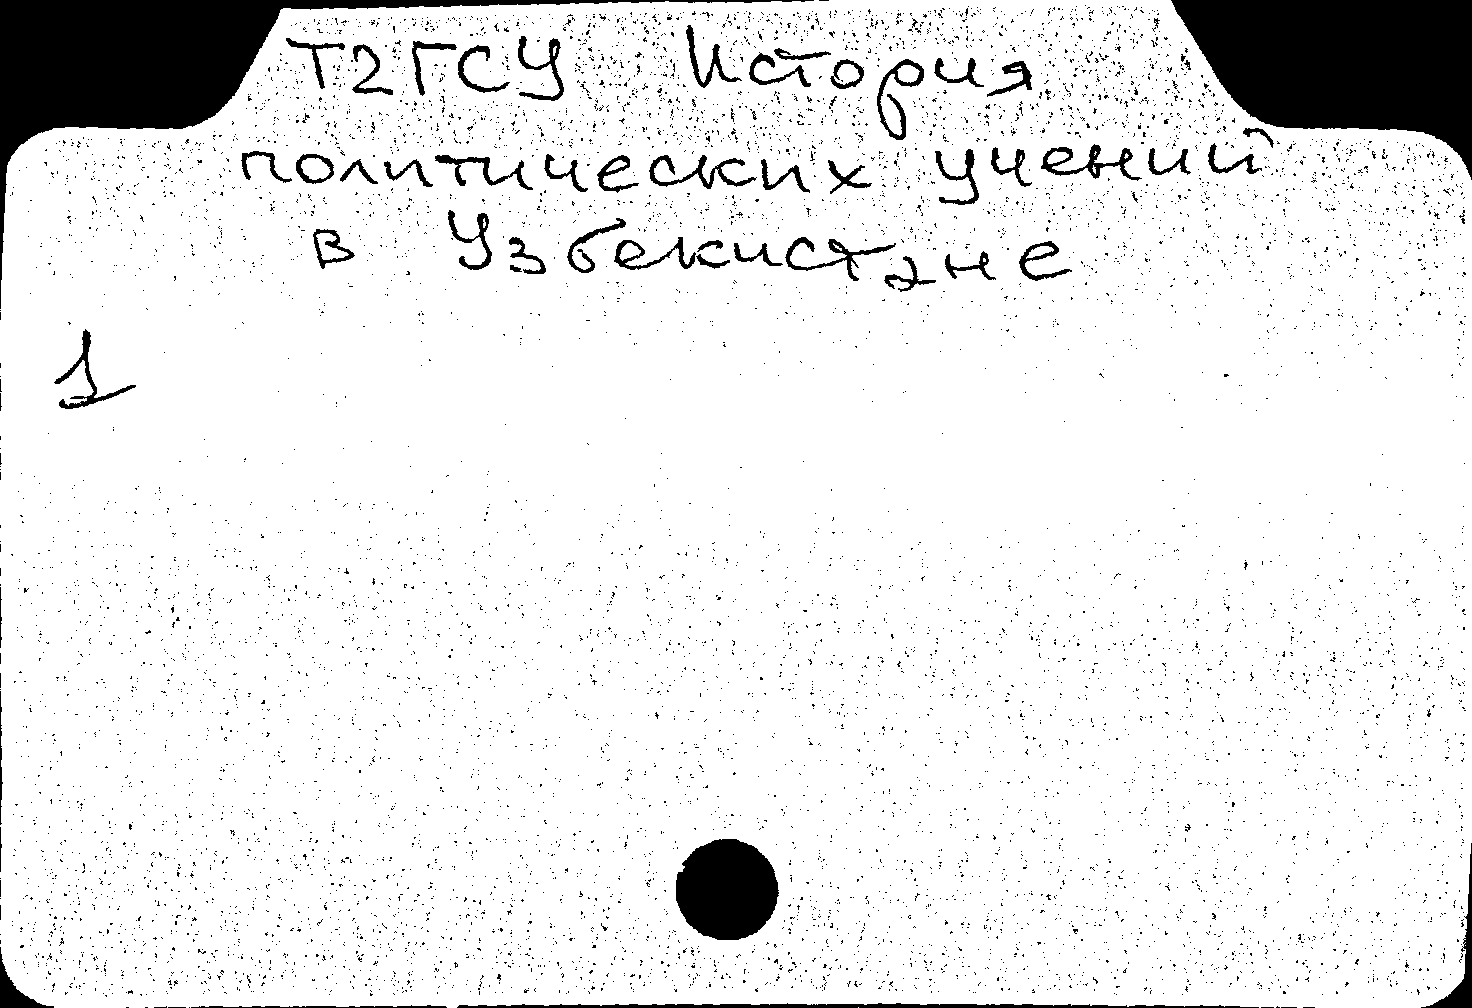 Т2ГСУ История
политических учений
в Узбекистане
1